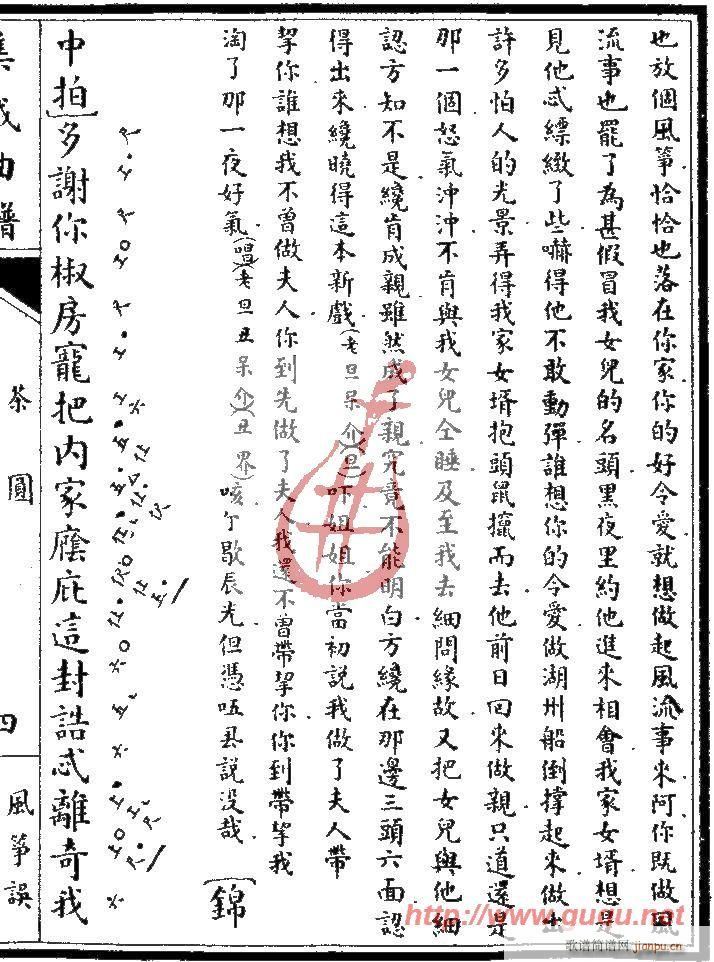 也放個風箏恰恰也落在你家你的好令愛就想做起風流事來阿你既做風
流事也罷了為甚假冒我女兒的名頭黑夜里約他進來相會我家女壻想是
見他忒縹緻了些嚇得他不敢動彈誰想你的令愛做湖州船倒撑起來做出
許多怕人的光景弄得我家女壻抱頭鼠攛而去他前日回來做親只道還是
那一個怒氣沖沖不肯與我女兒仝睡及至我去細問緣故又把女兒與他細
認方知不是纔肯成親雖然成了親究竟不能明白方纔在那邊三頭六面認
得出來纔曉得這本新戲(老旦呆介)(旦)吓姐姐你當初説我做了夫人帶
挈你誰想我不曾做夫人你到先做了夫人我還不曾帶挈你你到帶挈我
淘了那一夜好氣(唱)(老旦丑呆介)(丑 界)咳个歇辰光但憑唔县説没哉 錦
中拍多謝你椒房寵把内家廕庇這封誥忒離奇我
集成曲譜
茶圓
四
風箏誤
http://www.gugu.net
歌谱简谱网
jianpu.cn